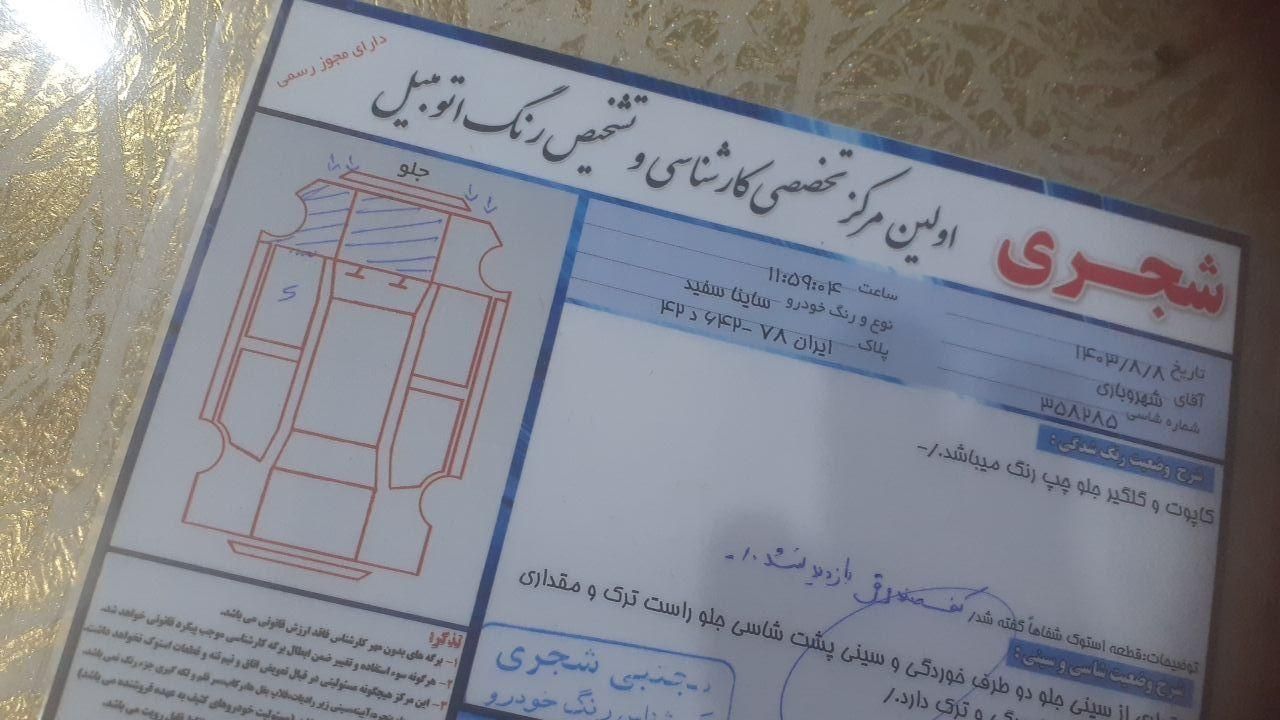 دارای مجوز رسمی
اولین مرکز تخصصی کارشناسی و تشخیص رنگ اتومبیل
شجری
تاریخ ۱۴۰۳/۸/۸
آقای شهروبازی
شماره شاسی ۳۵۸۲۸۵
ساعت ۱۱:۵۹:۰۴
نوع و رنگ خودرو ساینا سفید
پلاک ایران ۷۸ -۶۴۲ د ۴۲
جلو
شرح وضعیت رنگ شدگی :
کاپوت و گلگیر جلو چپ رنگ میباشد./-
توضیحات:قطعه استوک شفاهاً گفته شد/ کف صندوق بازدید نشد ./-
شرح وضعیت شاسی و سینی :
از سینی جلو دو طرف خوردگی و سینی پشت شاسی جلو راست ترک و مقداری
و ترک دارد./
جنبی شجری
رنگ خودرو
تذکر:
۱- برگه های بدون مهر کارشناس فاقد ارزش قانونی می باشد.
۲- هرگونه سوء استفاده و تغییر ضمن ابطال برگه کارشناسی موجب پیگرد قانونی خواهد شد.
۳- این مرکز هیچگونه مسئولیتی در قبال تعویض اتاق و نیم تنه و قطعات استوک نخواهد داشت.